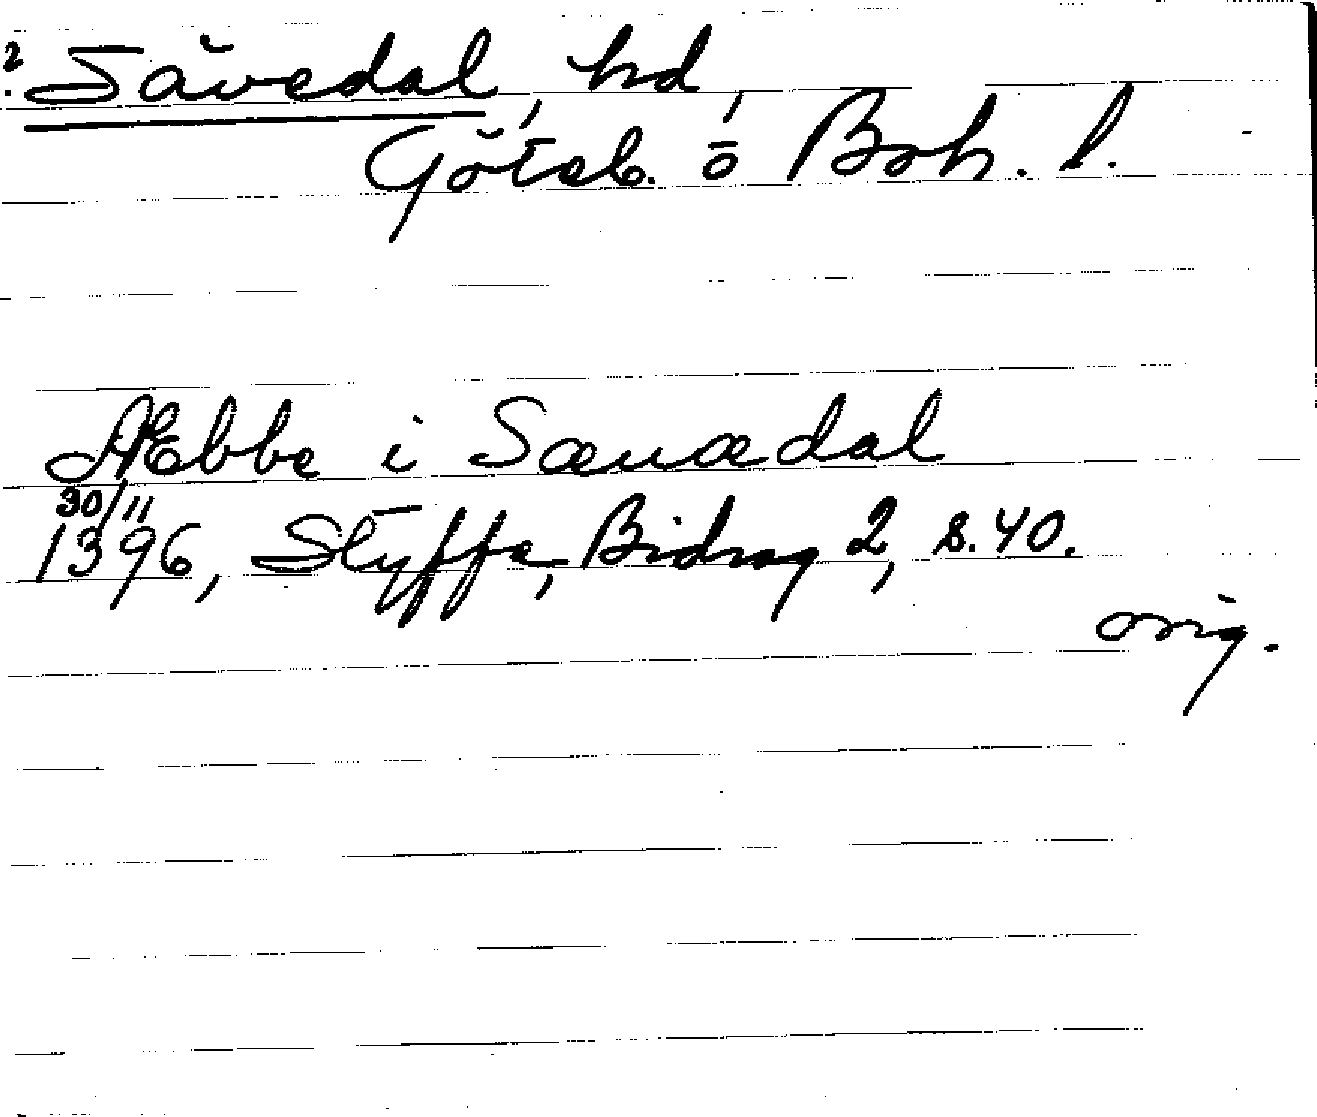 ? Sävedal, hd,
Göteb. o Boh. l.
Æbbe i Sæuædal
30/11
1396, Styffe, Bidrag 2, s. 40.
orig.